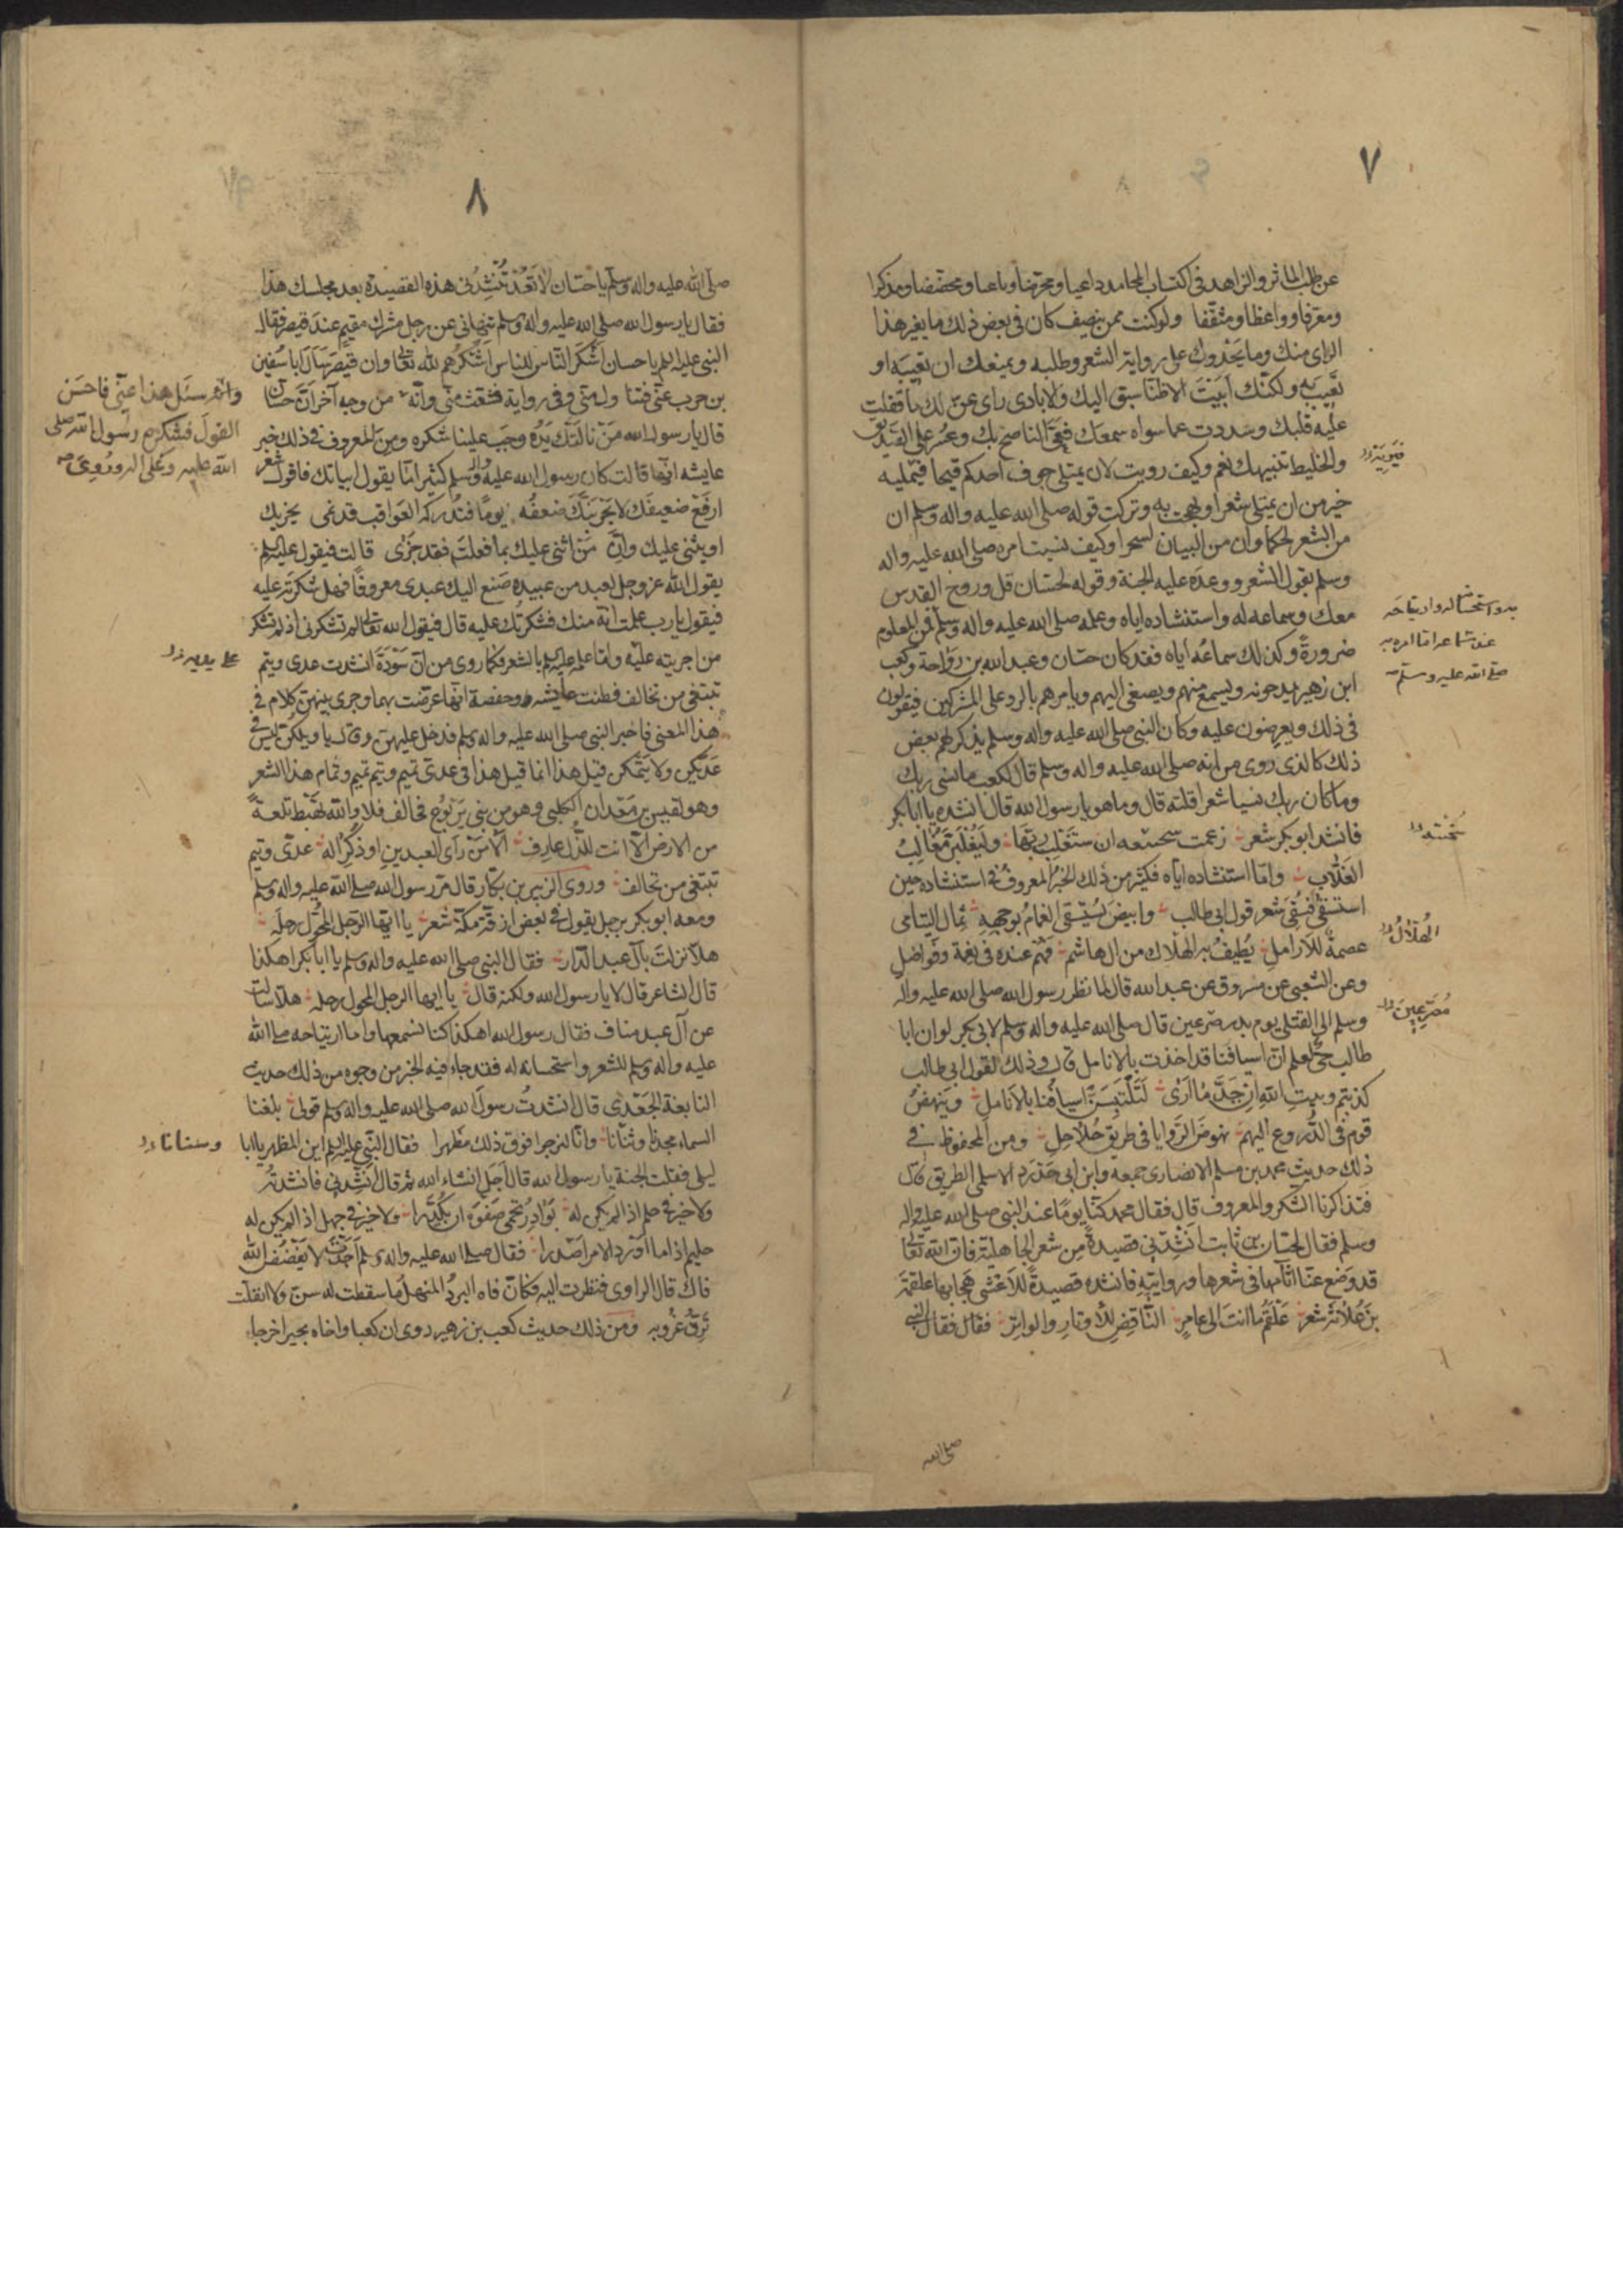 ٧
عن طلب المآثر والزاهد فى اكتساب المحامد داعيا ومحرضا وباعثا ومحضضا ومذكرا
ومعرفا وواعظا ومثقفا ولو كنت ممن ينصف كان فى بعض ذلك ما يغير هذا
الراى منك وما يحدوك على رواية الشعر وطلبه ويمنعك ان تعيبه او
تعيب به ولكنك ابيت الا ظنا سبق اليك والا بادى راى عن لك فاقفلت
عليه قلبك وسددت عما سواه سمعك فعى الناصح بك وعسر على الصديق
والخليط تنبيهك نعم وكيف رويت لان يمتلى جوف احدكم قيحا فيمليه
خير من ان يمتلى شعرا ولهجت به وتركت قوله صلى الله عليه واله وسلم ان
من الشعر لحكما وان من البيان لسحرا وكيف نسيت امره صلى الله عليه واله
وسلم بقول الشعر ووعده عليه الجنة وقوله لحسان قل وروح القدس
معك وسماعه له واستنشاده اياه وعلمه صلى الله عليه واله وسلم فمن المعلوم
ضرورة وكذلك سماعه اياه فقد كان حسان وعبد الله بن رواحة وكعب
ابن زهير يمدحونه ويسمع منهم ويصغى اليهم ويامرهم بالرد على المشركين فيقولون
فى ذلك ويعرضون عليه وكان النبى صلى الله عليه واله وسلم يذكر لهم بعض
ذلك كالذى روى من انه صلى الله عليه واله وسلم قال لكعب ما نسى ربك
وما كان ربك نسيا شعرا قلته قال وما هو يا رسول الله قال انشده يا ابا بكر
فانشد ابو بكر شعر زعمت سخينه ان ستغلب ربها وليغلبن مغالب
الغلاب واما استنشاده اياه فكثير من ذلك الخبر المعروف فى استنشاده حين
استسقى فسقى شعر قول ابى طالب وابيض يستسقى الغمام بوجهه ثمال اليتامى
عصمة للارامل يطيف به الهلاك من ال هاشم فهم عنده فى نعمة وفواضل
وعن الشعبى عن مسروق عن عبد الله قال لما نظر رسول الله صلى الله عليه واله
وسلم الى القتلى يوم بدر مصرعين قال صلى الله عليه واله وسلم لابى بكر لو ان ابا
طالب حى لعلم ان اسيافنا قد اخذت بالانامل قال وذلك لقول ابى طالب
كذبتم وبيت الله ان جد ما ارى لتلتبسن اسيافنا بالانامل وينهض
قوم فى الدروع اليهم نهوض الروايا فى طريق حلاحل ومن المحفوظ فى
ذلك حديث محمد بن مسلم الانصارى جمعه وابن ابى حدرد الاسلمى الطريق قال
فتذاكرنا الشكر والمعروف قال فقال محمد كنا يوما عند النبى صلى الله عليه واله
وسلم فقال لحسان بن ثابت انشدنى قصيدة من شعر الجاهلية فان الله تعالى
قد وضع عنا اثامها فى شعرها وروايته فانشده قصيدة للاعشى هجا بها علقمة
بن علاثة شعر علقم ما انت الى عامر الناقض الاوتار والواتر فقال فقال النبى
صلى الله
الهلاك
مصرعين
صلى الله عليه وسلم
٨
صلى الله عليه واله وسلم يا حسان لا تعد تنشدنى هذه القصيدة بعد مجلسك هذا
فقال يا رسول الله صلى الله عليه واله وسلم تنهانى عن رجل مشرك مقيم عند قيصر فقال
النبى عليه السلم يا حسان اشكر الناس للناس اشكرهم لله تعالى وان قيصر سال ابا سفين
بن حرب عنى فتناول منى وفى رواية فشعث منى وانه من وجه آخر ان حسان
قال يا رسول الله من نالتك يده وجب علينا شكره ومن المعروف فى ذلك خبر
عايشه انها قالت كان رسول الله عليه واله وسلم كثيرا ما يقول ابياتك فاقول شعر
ارفع ضعيفك لا يحربنك ضعفه يوما فتدركه العواقب قد نمى يجزيك
او يثنى عليك وان من اثنى عليك بما فعلت فقد جزى قالت فيقول عليه السلم
يقول الله عز وجل لعبد من عبيده صنع اليك عبدى معروفا فهل شكرته عليه
فيقول يا رب علمت انه منك فشكرتك عليه قال فيقول الله تعالى لم تشكرنى اذ لم تشكر
من اجريته عليه واما علمه عليه السلم بالشعر فكما روى من ان سودة انشدت عدى وتيم
تبتغى من تحالف فظنت عايشه وحفصة انها عرضت بهما وجرى بينهن كلام فى
هذا المعنى فاخبر النبى صلى الله عليه واله وسلم فدخل عليهن وقال يا ويلكن ليس فى
عديكن ولا تيمكن قيل هذا انما قيل هذا فى عدى تميم وتيم تميم وتمام هذا الشعر
وهو لقيس بن معدان الكلبى وهو من بنى يربوع فحالف فلا والله تهبط تلعة
من الارض الا انت للذل عارف الا من راى العبدين او ذكرا له عدى وتيم
تبتغى من تحالف وروى الزبير بن بكار قال مر رسول الله صلى الله عليه واله وسلم
ومعه ابو بكر برجل يقول فى بعض ازقة مكة شعر يا ايها الرجل المحول رحله
هلا نزلت بآل عبد الدار فقال النبى صلى الله عليه واله وسلم يا ابا بكر اهكذا
قال الشاعر قال لا يا رسول الله ولكنه قال يا ايها الرجل المحول رحله هلا سالت
عن آل عبد مناف فقال رسول الله هكذا كنا نسمعها واما ارتياحه صلى الله
عليه واله وسلم للشعر واستحسانه له فقد جاء فيه الخبر من وجوه من ذلك حديث
النابغة الجعدى قال انشدت رسول الله صلى الله عليه واله وسلم قولى بلغنا
السماء مجدنا وثنانا وانا لنرجو فوق ذلك مظهرا فقال النبى عليه السلم اين المظهر يا ابا
ليلى فقلت الجنة يا رسول الله قال اجل انشاء الله ثم قال انشدنى فانشدته
ولا خير فى حلم اذا لم يكن له بوادر تحمى صفوه ان يكدرا ولا خير فى جهل اذا لم يكن له
حليم اذا ما اورد الامر اصدرا فقال صلى الله عليه واله وسلم اجدت لا يفضض الله
فاك قال الراوى فنظرت اليه فكان فاه البرد المنهل ما سقطت له سن ولا انفلت
ترق غروبه ومن ذلك حديث كعب بن زهير روى ان كعبا واخاه بجيرا خرجا
وانه سئل هذا عنى فاحسن
القول فشكره رسول الله صلى
الله عليه وعلى اله وروى
على يديه
وسناناء